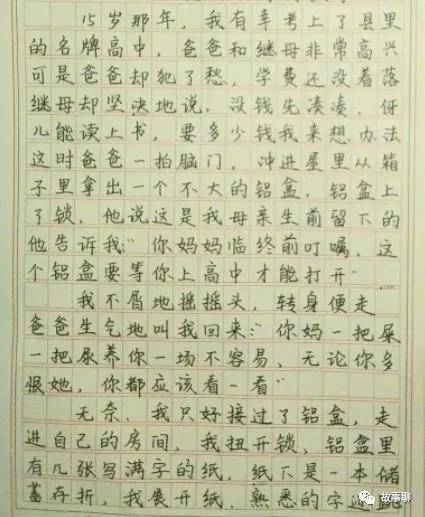 15岁那年，我有幸考上了县里
的名牌高中，爸爸和继母非常高兴
可是爸爸却犯了愁，学费还没着落
继母却坚决地说，没钱先凑凑，伢
儿能读上书，要多少钱我来想办法
这时爸爸一拍脑门，冲进屋里从箱
子里拿出一个不大的铝盒，铝盒上
了锁，他说这是我母亲生前留下的
他告诉我：“你妈妈临终前叮嘱，这
个铝盒要等你上高中才能打开”
我不屑地摇摇头，转身便走
爸爸生气地叫我回来：“你妈一把屎
一把尿养你一场不容易，无论你多
恨她，你都应该看一看”
无奈，我只好接过了铝盒，走
进自己的房间，我扭开锁，铝盒里
有几张写满字的纸，纸下是一本储
蓄存折，我展开纸，熟悉的字迹
故事聊